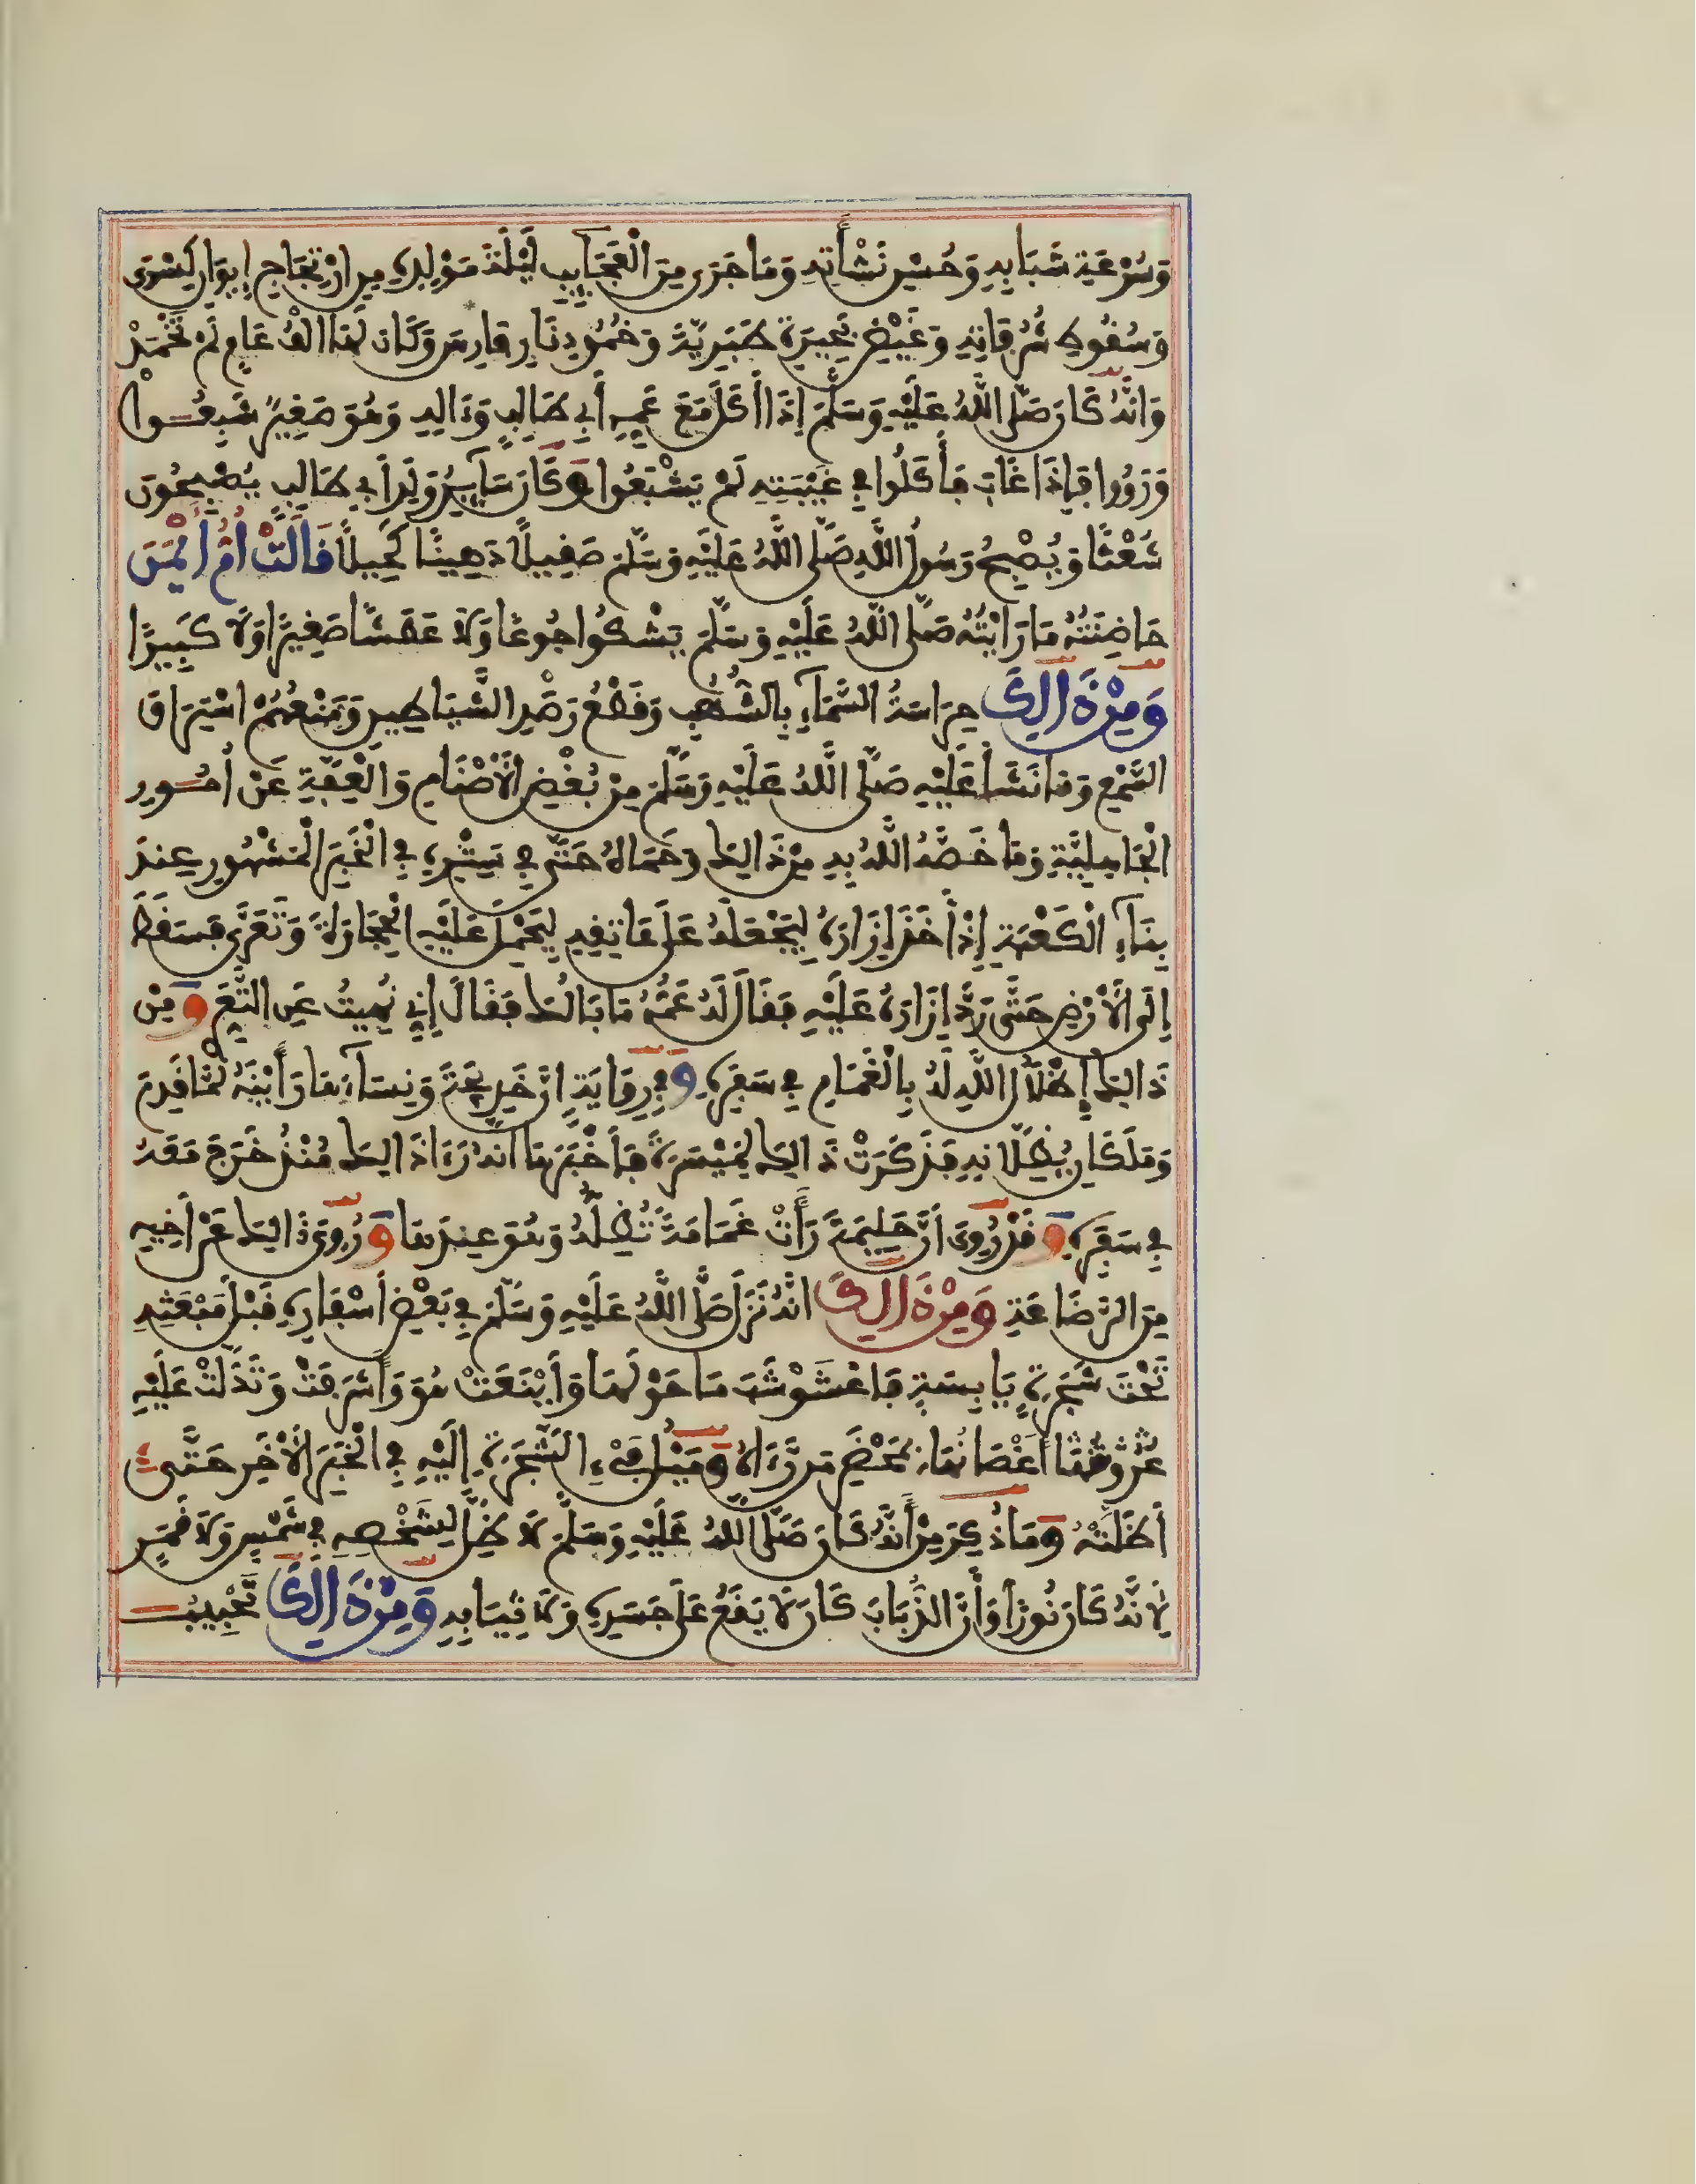 وَسُرْعَةِ شَبَابِهِ وَحُسْنِ نَشْأَتِهِ وَمَا جَرَى مِنَ الْعَجَآيِبِ لَيْلَةَ مَوْلِدِهِ مِنِ ارْتِجَاجِ إِيوَانِ كِسْرَى
وَسُقُوطِ شُرُفَاتِهِ وَغَيْضِ بُحَيْرَةِ طَبَرِيَّةَ وَخُمُودِ نَارِ فَارِسَ وَكَانَ لَهَا أَلْفُ عَامٍ لَمْ تَخْمَدْ
وَأَنَّهُ كَانَ صَلَّى اللَّهُ عَلَيْهِ وَسَلَّمَ إِذَا أَكَلَ مَعَ عَمِّهِ أَبِي طَالِبٍ وَءَالِهِ وَهُوَ صَغِيرٌ شَبِعُوا
وَرَوُوا فَإِذَا غَابَ فَأَكَلُوا فِي غَيْبَتِهِ لَمْ يَشْبَعُوا وَكَانَ سَآيِرُ وَلَدِ أَبِي طَالِبٍ يُصْبِحُونَ
شُعْثًا وَيُصْبِحُ رَسُولُ اللَّهِ صَلَّى اللَّهُ عَلَيْهِ وَسَلَّمَ صَقِيلًا دَهِينًا كَحِيلًا قَالَتْ أُمُّ أَيْمَنَ
حَاضِنَتُهُ مَا رَأَيْتُهُ صَلَّى اللَّهُ عَلَيْهِ وَسَلَّمَ يَشْكُوا جُوعًا وَلَا عَطَشًا صَغِيرًا وَلَا كَبِيرًا
وَمِنْ ذَالِكَ حِرَاسَةُ السَّمَآءِ بِالشُّهُبِ وَقَطْعُ رَصْدِ الشَّيَاطِينِ وَمَنْعُهُمُ اسْتِرَاقَ
السَّمْعِ وَمَا نَشَأَ عَلَيْهِ صَلَّى اللَّهُ عَلَيْهِ وَسَلَّمَ مِنْ بُغْضِ الْأَصْنَامِ وَالْعِفَّةِ عَنْ أُمُورِ
الْجَاهِلِيَّةِ وَمَا خَصَّهُ اللَّهُ بِهِ مِنْ ذَالِكَ وَحَمَاهُ حَتَّى فِي سَتْرِهِ فِي الْخَبَرِ الْمَشْهُورِ عِنْدَ
بِنَآءِ الْكَعْبَةِ إِذْ أَخَذَ إِزَارَهُ لِيَجْعَلَهُ عَلَى عَاتِقِهِ لِيَحْمِلَ عَلَيْهِ الْحِجَارَةَ وَتَعَرَّى فَسَقَطَ
إِلَى الْأَرْضِ حَتَّى رَدَّ إِزَارَهُ عَلَيْهِ فَقَالَ لَهُ عَمُّهُ مَا بَالُكَ فَقَالَ إِنِّي نُهِيتُ عَنِ التَّعَرِّي وَمِنْ
ذَالِكَ إِظْلَالُ اللَّهِ لَهُ بِالْغَمَامِ فِي سَفَرِهِ وَفِي رِوَايَةٍ أَنَّ خَدِيجَةَ وَنِسَآءَهَا رَأَيْنَهُ لَمَّا قَدِمَ
وَمَلَكَانِ يُظِلَّانِهِ فَذَكَرَتْ ذَالِكَ لِمَيْسَرَةَ فَأَخْبَرَهَا أَنَّهُ رَءَا ذَالِكَ مُنْذُ خَرَجَ مَعَهُ
فِي سَفَرِهِ وَقَدْ رُوِيَ أَنَّ حَلِيمَةَ رَأَتْ غَمَامَةً تُظِلُّهُ وَهُوَ عِنْدَهَا وَرُوِيَ ذَالِكَ عَنْ أَخِيهِ
مِنَ الرَّضَاعَةِ وَمِنْ ذَالِكَ أَنَّهُ نَزَلَ صَلَّى اللَّهُ عَلَيْهِ وَسَلَّمَ فِي بَعْضِ أَسْفَارِهِ قَبْلَ مَبْعَثِهِ
تَحْتَ شَجَرَةٍ يَابِسَةٍ فَاعْشَوْشَبَ مَا حَوْلَهَا وَأَيْنَعَتْ هُوَ وَأَشْرَقَتْ وَتَدَلَّتْ عَلَيْهِ
أَغْصَانُهَا بِمَحْضَرِ مَنْ رَءَاهُ وَمَيْلُ فَيْءِ الشَّجَرَةِ إِلَيْهِ فِي الْخَبَرِ الْأَخَرِ حَتَّى
أَظَلَّتْهُ وَمَا ذُكِرَ مِنْ أَنَّهُ كَانَ صَلَّى اللَّهُ عَلَيْهِ وَسَلَّمَ لَا ظِلَّ لِشَخْصِهِ فِي شَمْسٍ وَلَا قَمَرٍ
لِأَنَّهُ كَانَ نُورًا وَأَنَّ الذُّبَابَ كَانَ لَا يَقَعُ عَلَى جَسَدِهِ وَلَا ثِيَابِهِ وَمِنْ ذَالِكَ تَحْبِيبُ